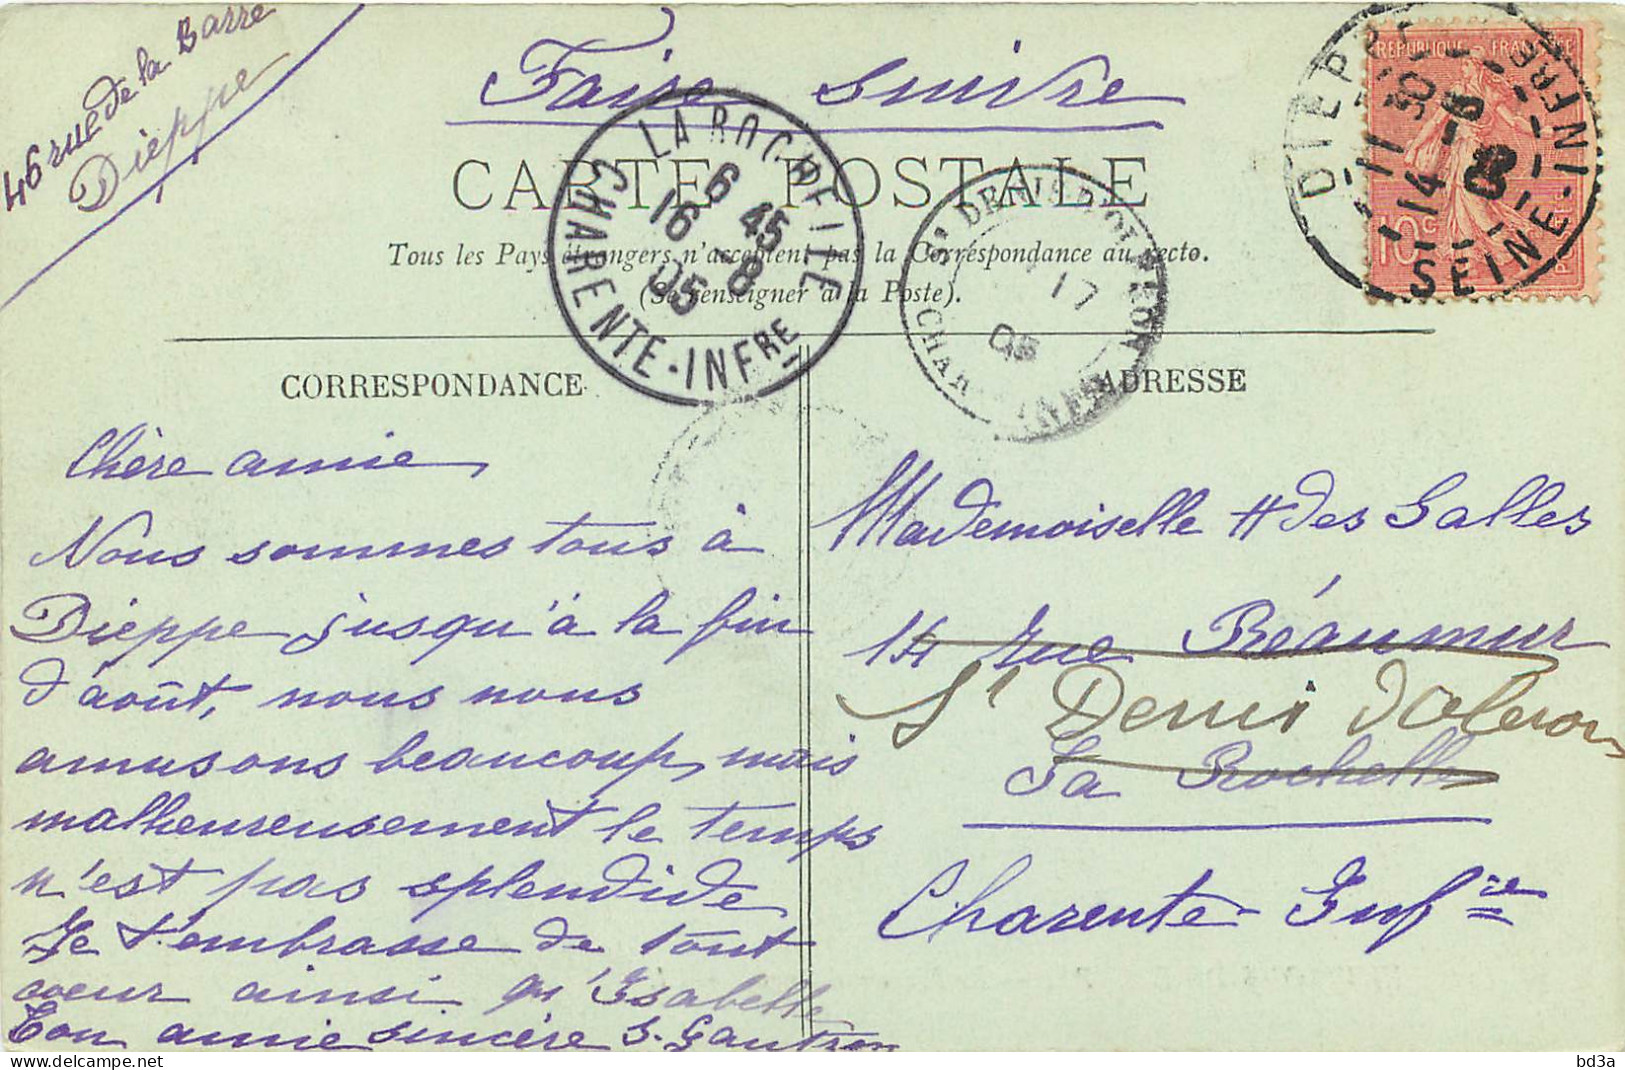 46 rue de la Barre
Dieppe
Faire suivre
CARTE POSTALE
Tous les Pays étrangers n'acceptent pas la Correspondance au recto.
(Se renseigner à la Poste).
LA ROCHELLE
6 45
16 8
05
CHARENTE-INFRE
ST DENIS D'OLERON
17
05
DIEPPE
11 30
14 8
SEINE-INFRE
REPUBLIQUE FRANÇAISE
10c
CORRESPONDANCE
ADRESSE
Chère amie,
Nous sommes tous à
Dieppe jusqu'à la fin
d'août, nous nous
amusons beaucoup, mais
malheureusement le temps
n'est pas splendide
Je t'embrasse de tout
coeur ainsi qu'Isabelle
Ton amie sincère S. Gautron
Mademoiselle H des Salles
14 Rue Réaumur
St Denis d'Oleron
La Rochelle
Charente Infre
bd3a